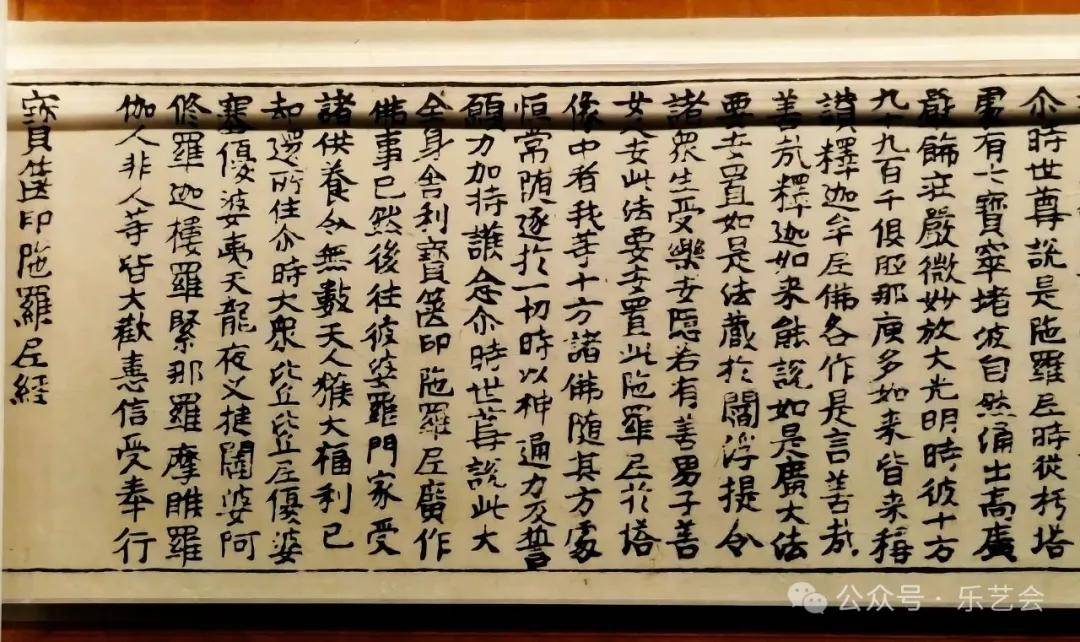 尒時世尊說是陁羅尼時從朽塔
處有七寶窣堵波自然涌出高廣
嚴飾莊嚴微妙放大光明時彼十方
九十九百千俱胝那庾多如来皆来稱
讃釋迦牟尼佛各作是言善哉
善哉釋迦如来能說如是廣大法
要安置如是法藏於閻浮提令
諸衆生受樂安隱若有善男子善
女人安此法要安置此陁羅尼於塔
像中者我等十方諸佛随其方處
恒常随逐於一切時以神通力及誓
願力加持護念尒時世尊說此大
全身舍利寶篋印陁羅尼廣作
佛事已然後往彼婆羅門家受
諸供養令無數天人獲大福利已
却還所住尒時大衆比丘比丘尼優婆
塞優婆夷天龍夜叉揵闥婆阿
修羅迦樓羅緊那羅摩睺羅
伽人非人等皆大歡憙信受奉行
寶篋印陁羅尼經
公众号·乐艺会